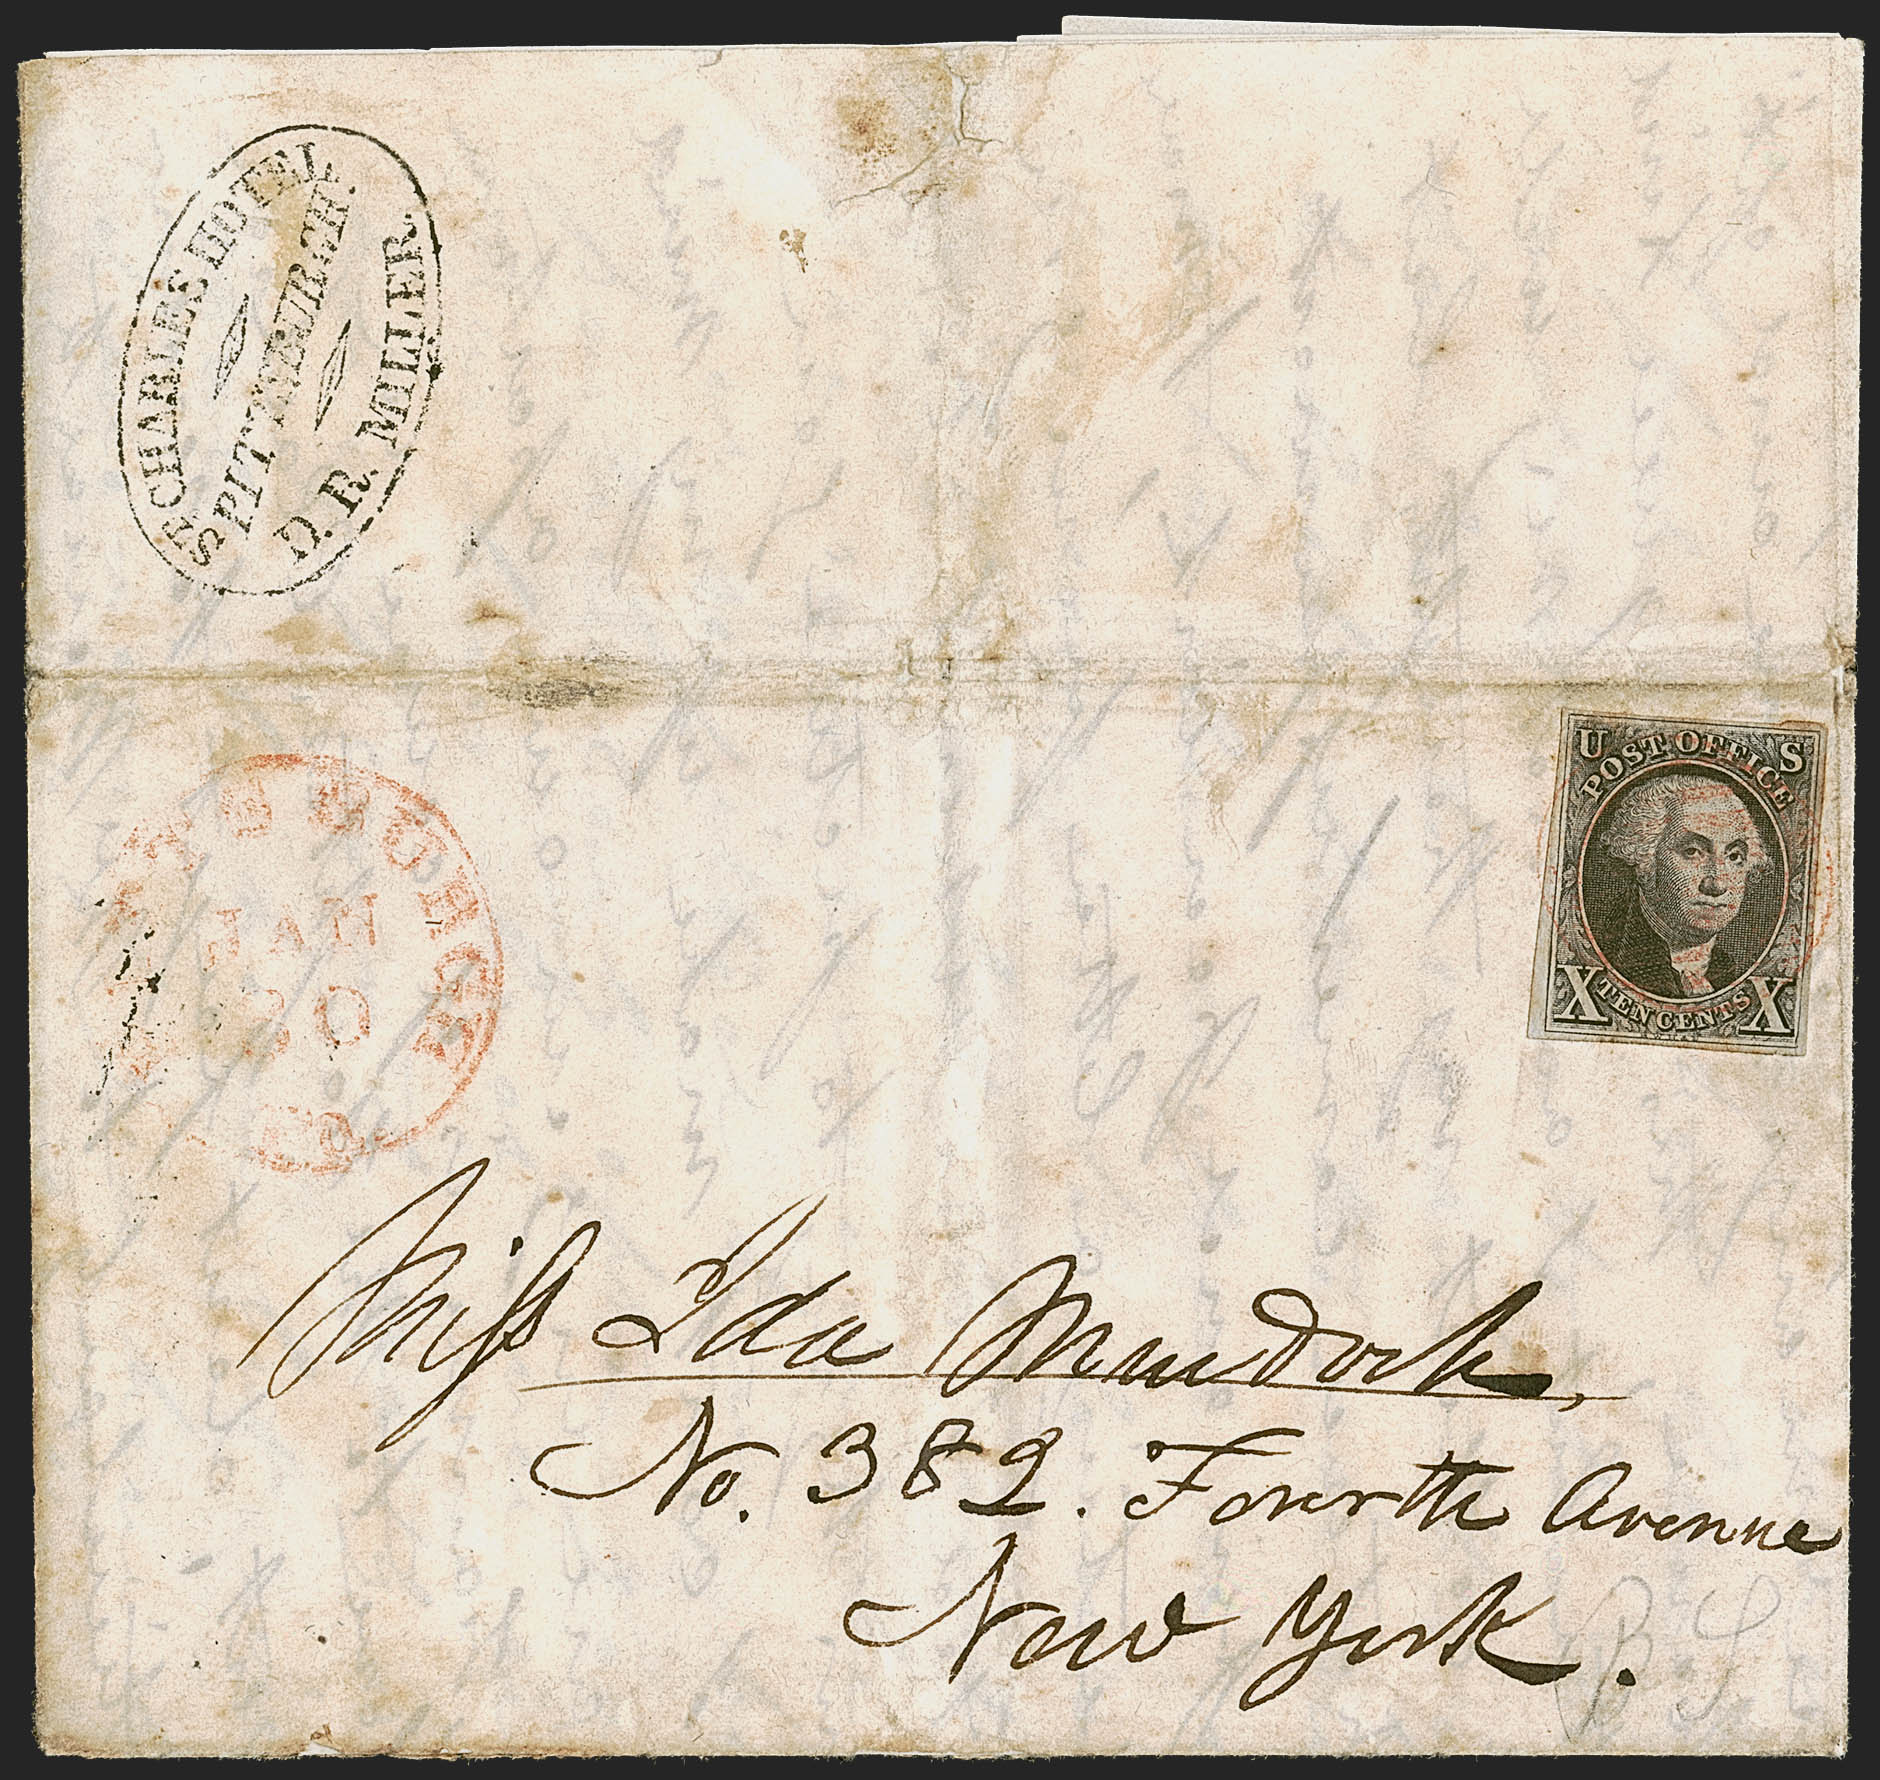 ST CHARLES HOTEL.
PITTSBURGH.
D. R. MILLER.
JAN
30
Pa.
U S
POST OFFICE
X TEN CENTS X
Miss Ida Murdock,
No. 382. Fourth Avenue
New York.